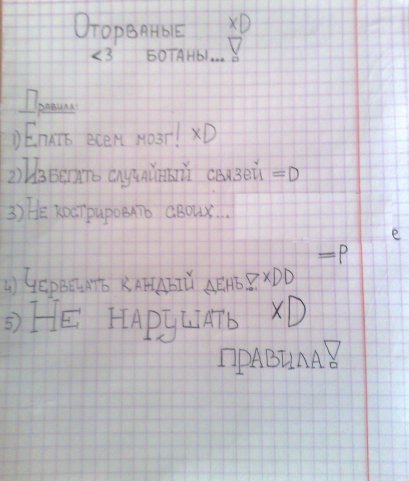 Оторваные xD
<3 ботаны...!
Правила:
1) Епать всем мозг! xD
2) Избегать случайный связей =D
3) Не кострировать своих...
=P
e
4) Червечать каждый день! xDD
5) Не нарушать xD
правила!